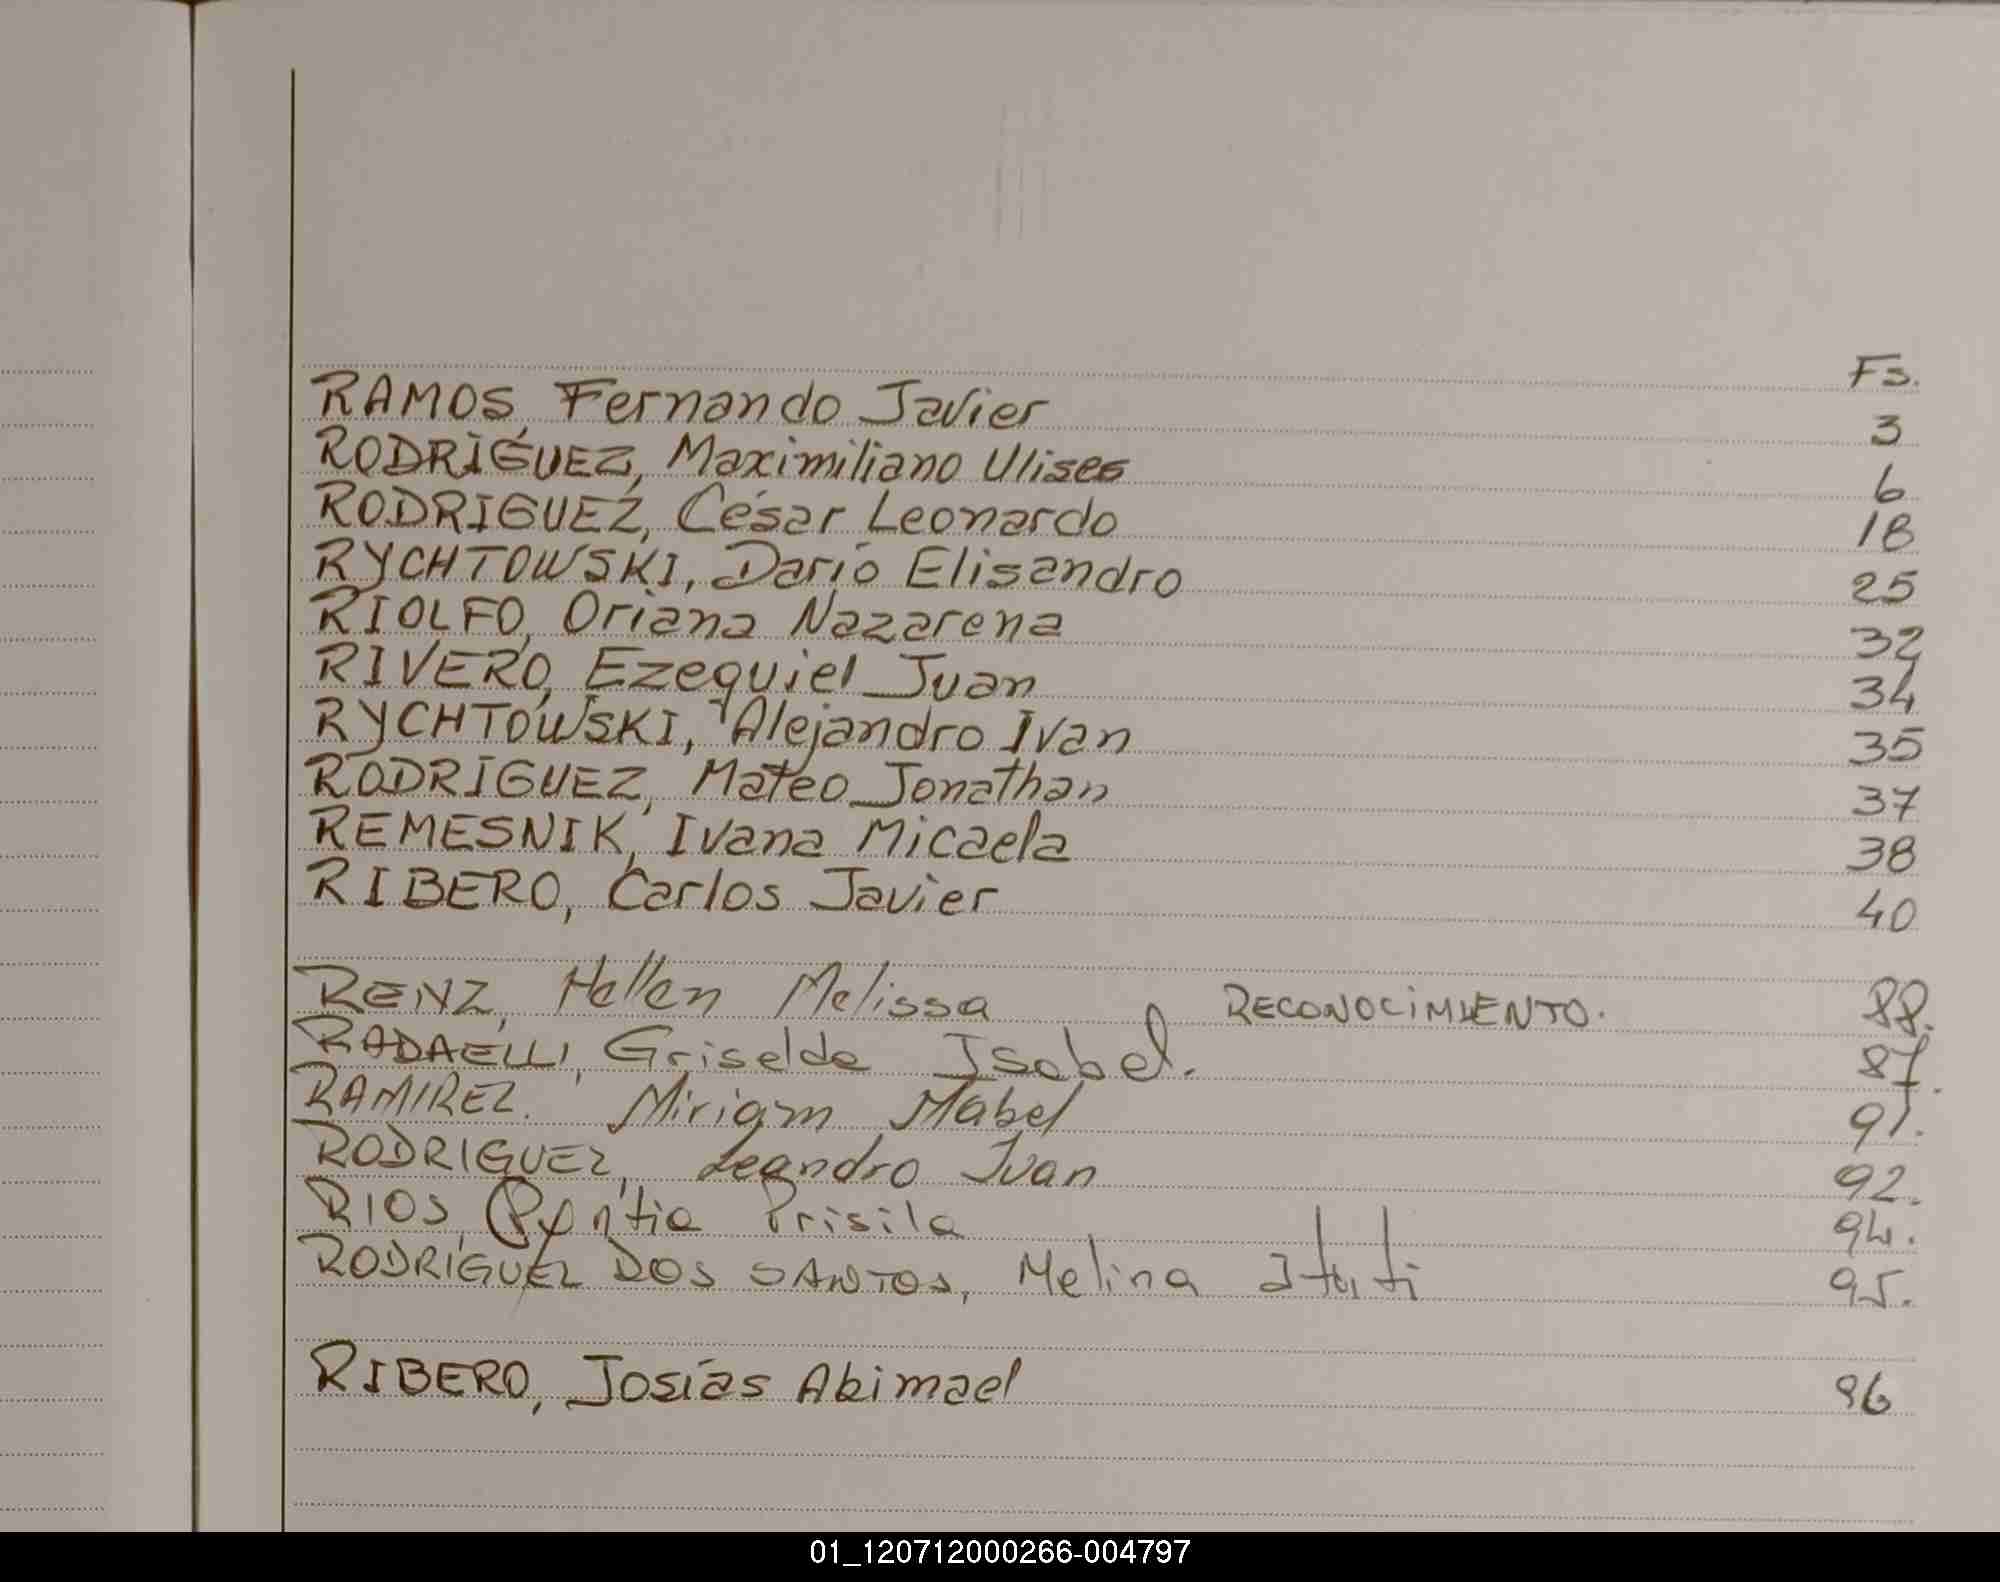 Fs.
RAMOS, Fernando Javier 3
RODRÍGUEZ, Maximiliano Ulises 6
RODRIGUEZ, César Leonardo 18
RYCHTOWSKI, Darío Elisandro 25
RIOLFO, Oriana Nazarena 32
RIVERO, Ezequiel Juan 34
RYCHTOWSKI, Alejandro Ivan 35
RODRÍGUEZ, Mateo Jonathan 37
REMESNIK, Ivana Micaela 38
RIBERO, Carlos Javier 40
RENZ, Hellen Melissa RECONOCIMIENTO. 88.
RADAELLI, Griselda Isabel. 87.
RAMIREZ. Miriam Mabel 91.
RODRIGUEZ, Leandro Juan 92.
RIOS, Prisila 94.
RODRÍGUEZ DOS SANTOS, Melina 95.
RIBERO, Josías Abimael 96
01_120712000266-004797